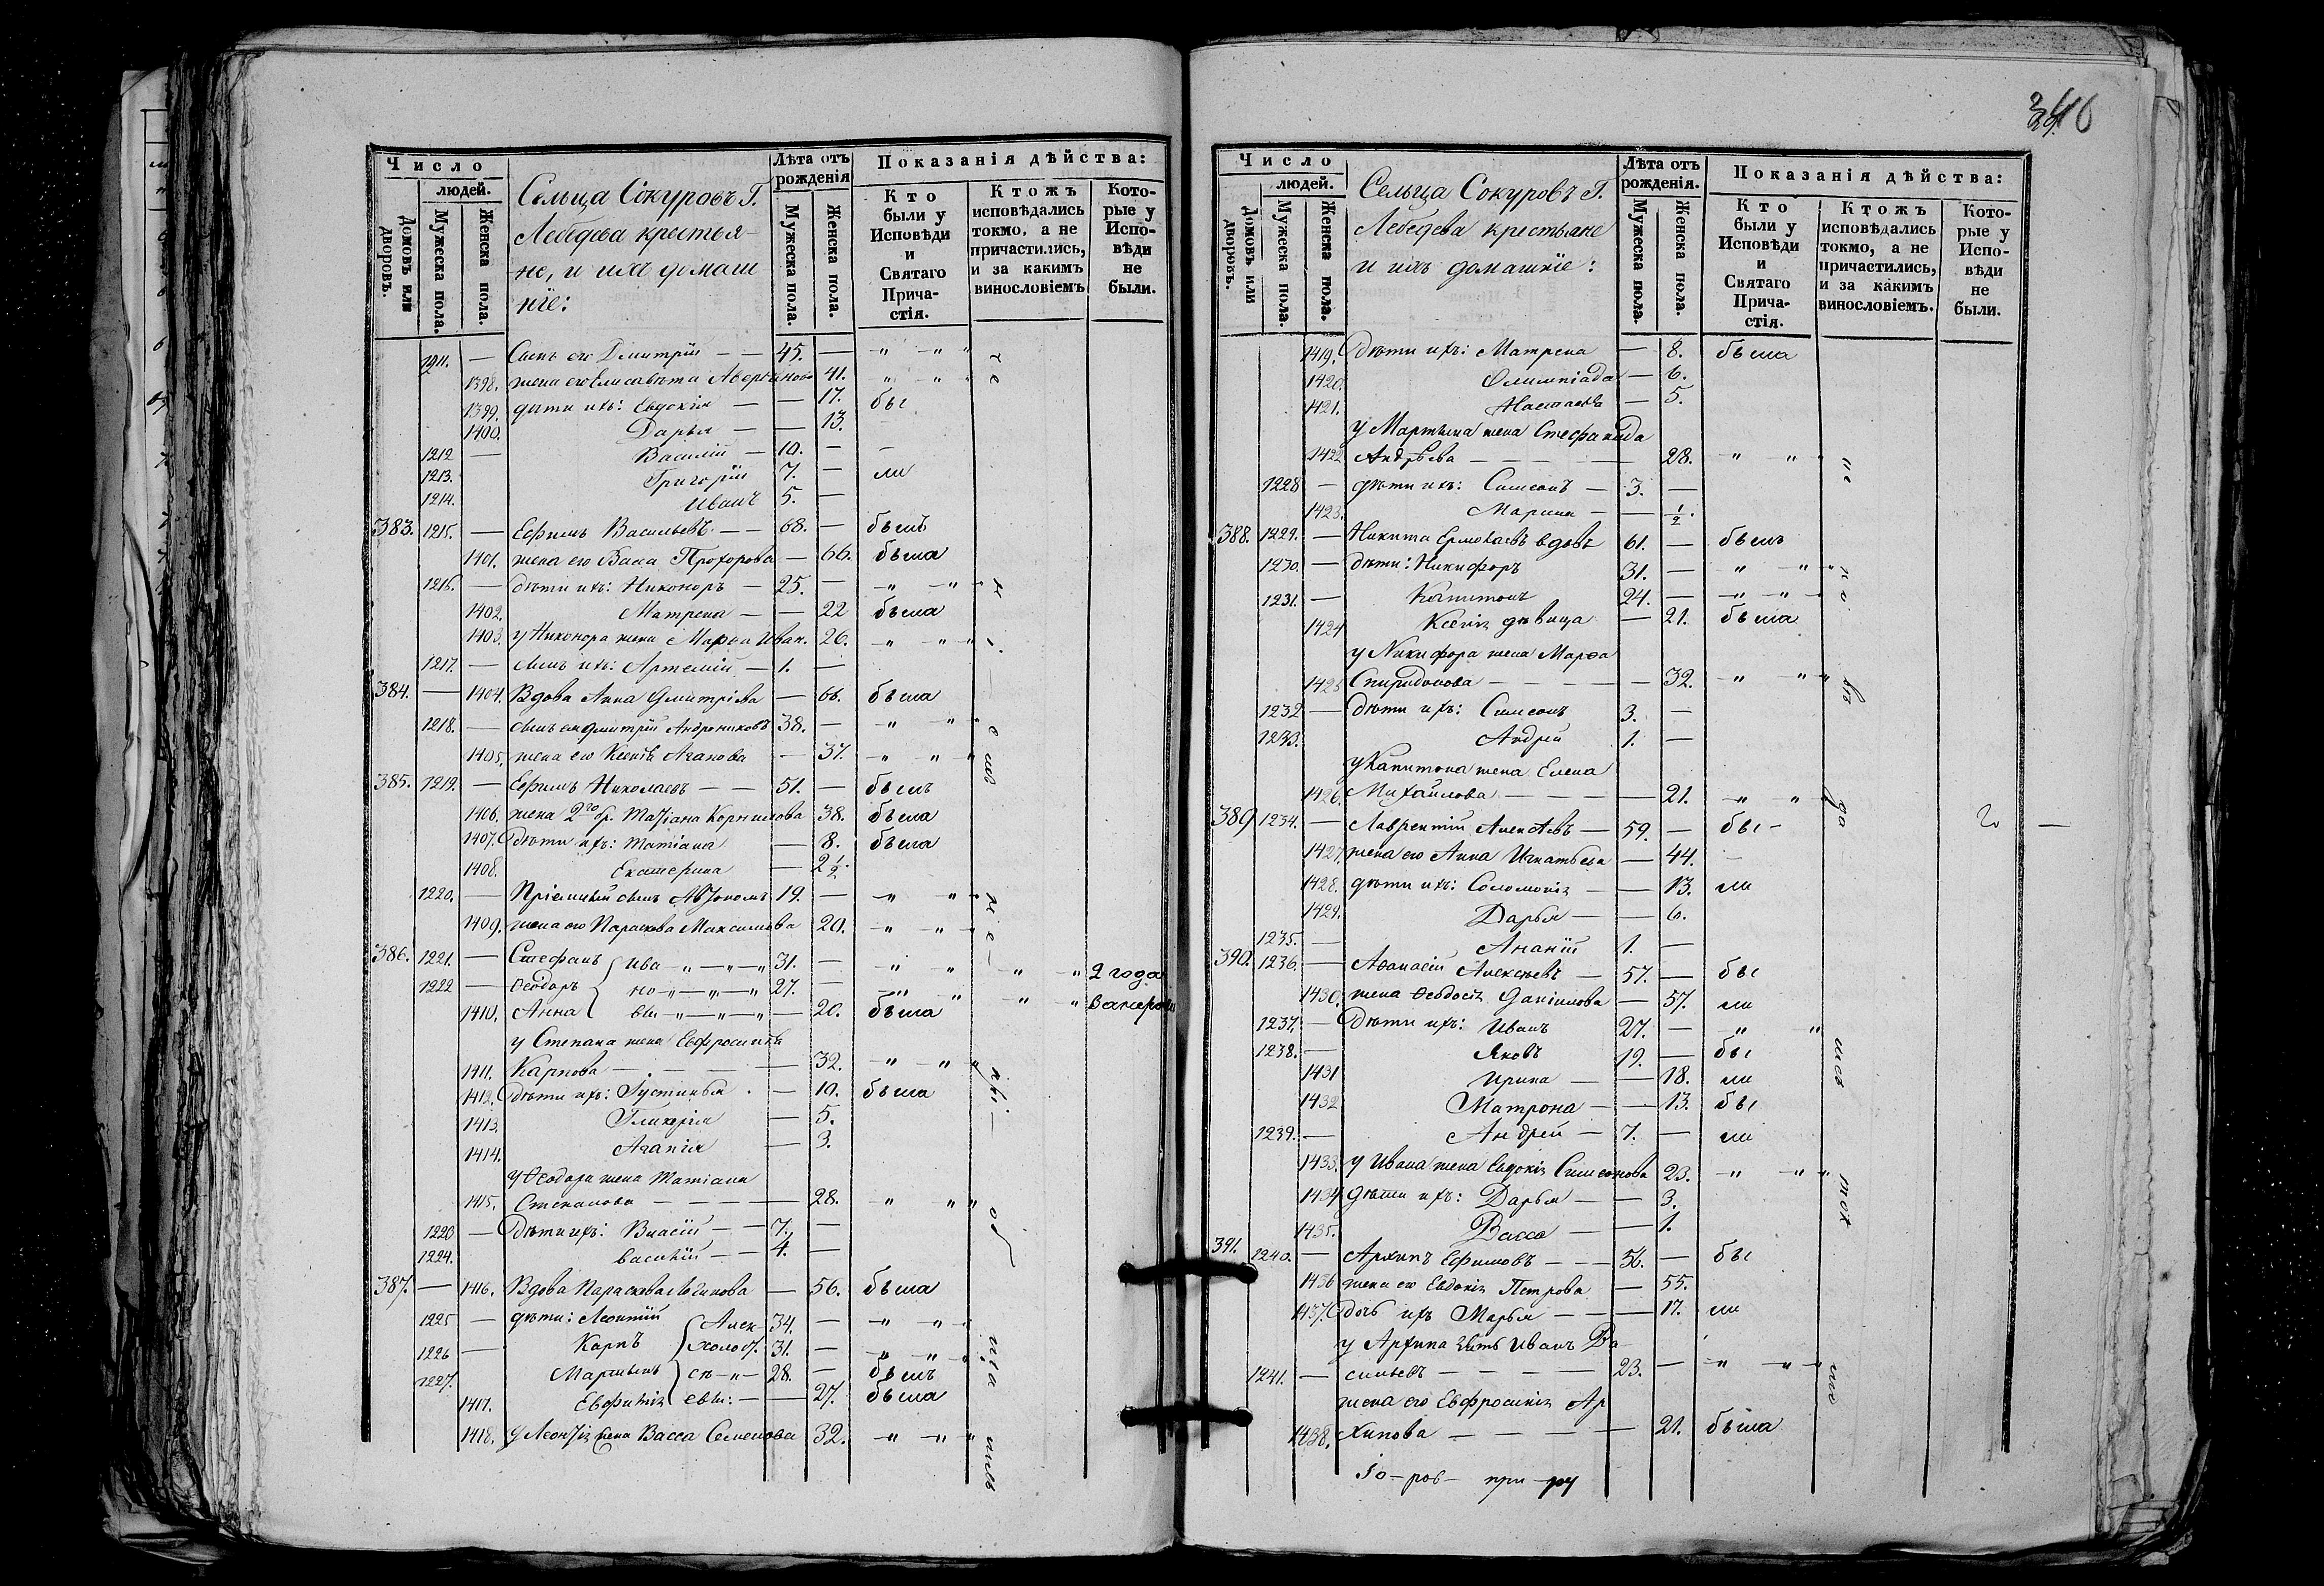 Число
людей.
Домовъ или дворовъ.
Мужеска пола.
Женска пола.
Сельца Сокуровъ Г.
Лебедева крестья-
не, и ихъ домаш
ніе:
Лѣта отъ рожденія
Мужеска пола.
Женска пола.
Показанія дѣйства:
Кто были у Исповѣди и Святаго Прича-стія.
Ктожъ исповѣдались токмо, а не причастились, и за какимъ винословіемъ
Кото-рые у Испо-вѣди не были.
1211. — Сынъ его Дмитрій — — 45. — " " "
1398. жена его Елисавета Аверкиева 41. " " "
1399. дѣти ихъ: Евдокія — — 17. бы
1400. Дарья — — 13.
1212 — Василій — 10. — —
1213. Григорій 7. — ли
1214. Иванъ 5. —
383. 1215. — Ефимъ Васильевъ — — 68. — былъ
1401. жена его Васса Прохорова — 66. была
1216. — дѣти ихъ: Никоноръ — 25. — " " "
1402. Матрена — — 22 была
1403. у Никонора жена Марѳа Иван. 26. " " "
1217. — сынъ ихъ: Артемій — 1. —
384. — 1404. Вдова Анна Дмитріева — 66. была
1218. — сынъ ея Дмитрій Андрониковъ 38. — " " "
1405. жена его Ксенія Агапова — 37. " " "
385. 1219. — Ефимъ Николаевъ — — 51. — былъ
1406. жена 2го бр. Татіана Корнилова 38. была
1407. Дѣти ихъ: Татіана — 8. была
1408. Екатерина — 2 1/2.
1220. — Пріемный сынъ Автономъ 19. — " " "
1409. жена его Параскева Максимова 20. " " "
386. 1221. — Стефанъ Ива " " " 31. — " " " " 2 года
1222 — Ѳеодоръ но " " " 27. — " " " "
1410. Анна вы " " " — 20. была "
у Степана жена Евфросинія
1411. Карпова — — — — 32. " " "
1412. Дѣти ихъ: Густинья — 10. была
1413. Гликерія — 5.
1414. Агапія — 3.
у Ѳеодора жена Татіана
1415. Степанова — — — — 28. " " "
1223 — Дѣти ихъ: Власій — — 7. —
1224. Василій — — 4. —
387. — 1416. Вдова Параскева Логинова — 56. была
1225 — дѣти: Леонтій Алек 34. — " " "
1226 — Карпъ холост. 31. — " " "
1227. Мартынъ 28. — былъ
1417. Евфимія евы: — — 27. была
1418. у Леонтія жена Васса Семенова 32. " " "
Число
людей.
Домовъ или дворовъ.
Мужеска пола.
Женска пола.
Сельца Сокуровъ Г.
Лебедева крестьяне
и ихъ домашніе:
Лѣта отъ рожденія.
Мужеска пола.
Женска пола.
Показанія дѣйства:
Кто были у Исповѣди и Святаго Прича-стія.
Ктожъ исповѣдались токмо, а не причастились, и за какимъ винословіемъ.
Кото-рые у Испо-вѣди не были.
1419. Дѣти ихъ: Матрена — 8. была
1420. Олимпіада — 6.
1421. Настасья — 5.
у Мартына жена Стефанида
1422 Андрѣева — — — — 28. " " "
1228 — дѣти ихъ: Симеонъ — 3. —
1423. Марина — — 1/2.
388. 1229. — Никита Ермолаевъ вдовъ 61. — былъ
1230. — дѣти: Никифоръ 31. — " " "
1231. — Капитонъ 24. — " " "
1424 Ксенія дѣвица — 21. была
у Никифора жена Марѳа
1425 Спиридонова — — — — 32. " " "
1232 — Дѣти ихъ: Симеонъ 3. —
1233. Андрей 1. —
у Капитона жена Елена
1426. Михайлова — — — — 21. " " "
389 1234. — Лаврентій Алексѣевъ — 59. — бы-
1427. жена его Анна Игнатьева — 44.
1428. дѣти ихъ: Соломонія — — 13. ли
1429. Дарья — — 6.
1235. — Ананій 1. —
390. 1236. — Аѳанасій Алексѣевъ — 57. — бы
1430. жена Ѳеодосія Даниилова — 57. ли
1237. — Дѣти ихъ: Иванъ 27. — " "
1238. — Яковъ 19. — бы
1431 Ирина — — 18. ли
1432 Матрона — — 13. бы
1239. — Андрей — 7. — ли
1433. у Ивана жена Евдокія Симеонова 23. " " "
1434 Дѣти ихъ: Дарья — — 3.
1435. Васса — — 1.
391. 1240. — Архипъ Ефимовъ — — — 56. — бы
1436 жена его Евдокія Петрова — 55.
1437. Дочь ихъ Марья — — — 17. ли
у Архипа зять Иванъ Ва-
1241. — сильевъ — — — — 23. — " " "
жена его Евфросинія Ар
1438. хипова — — — — 21. была